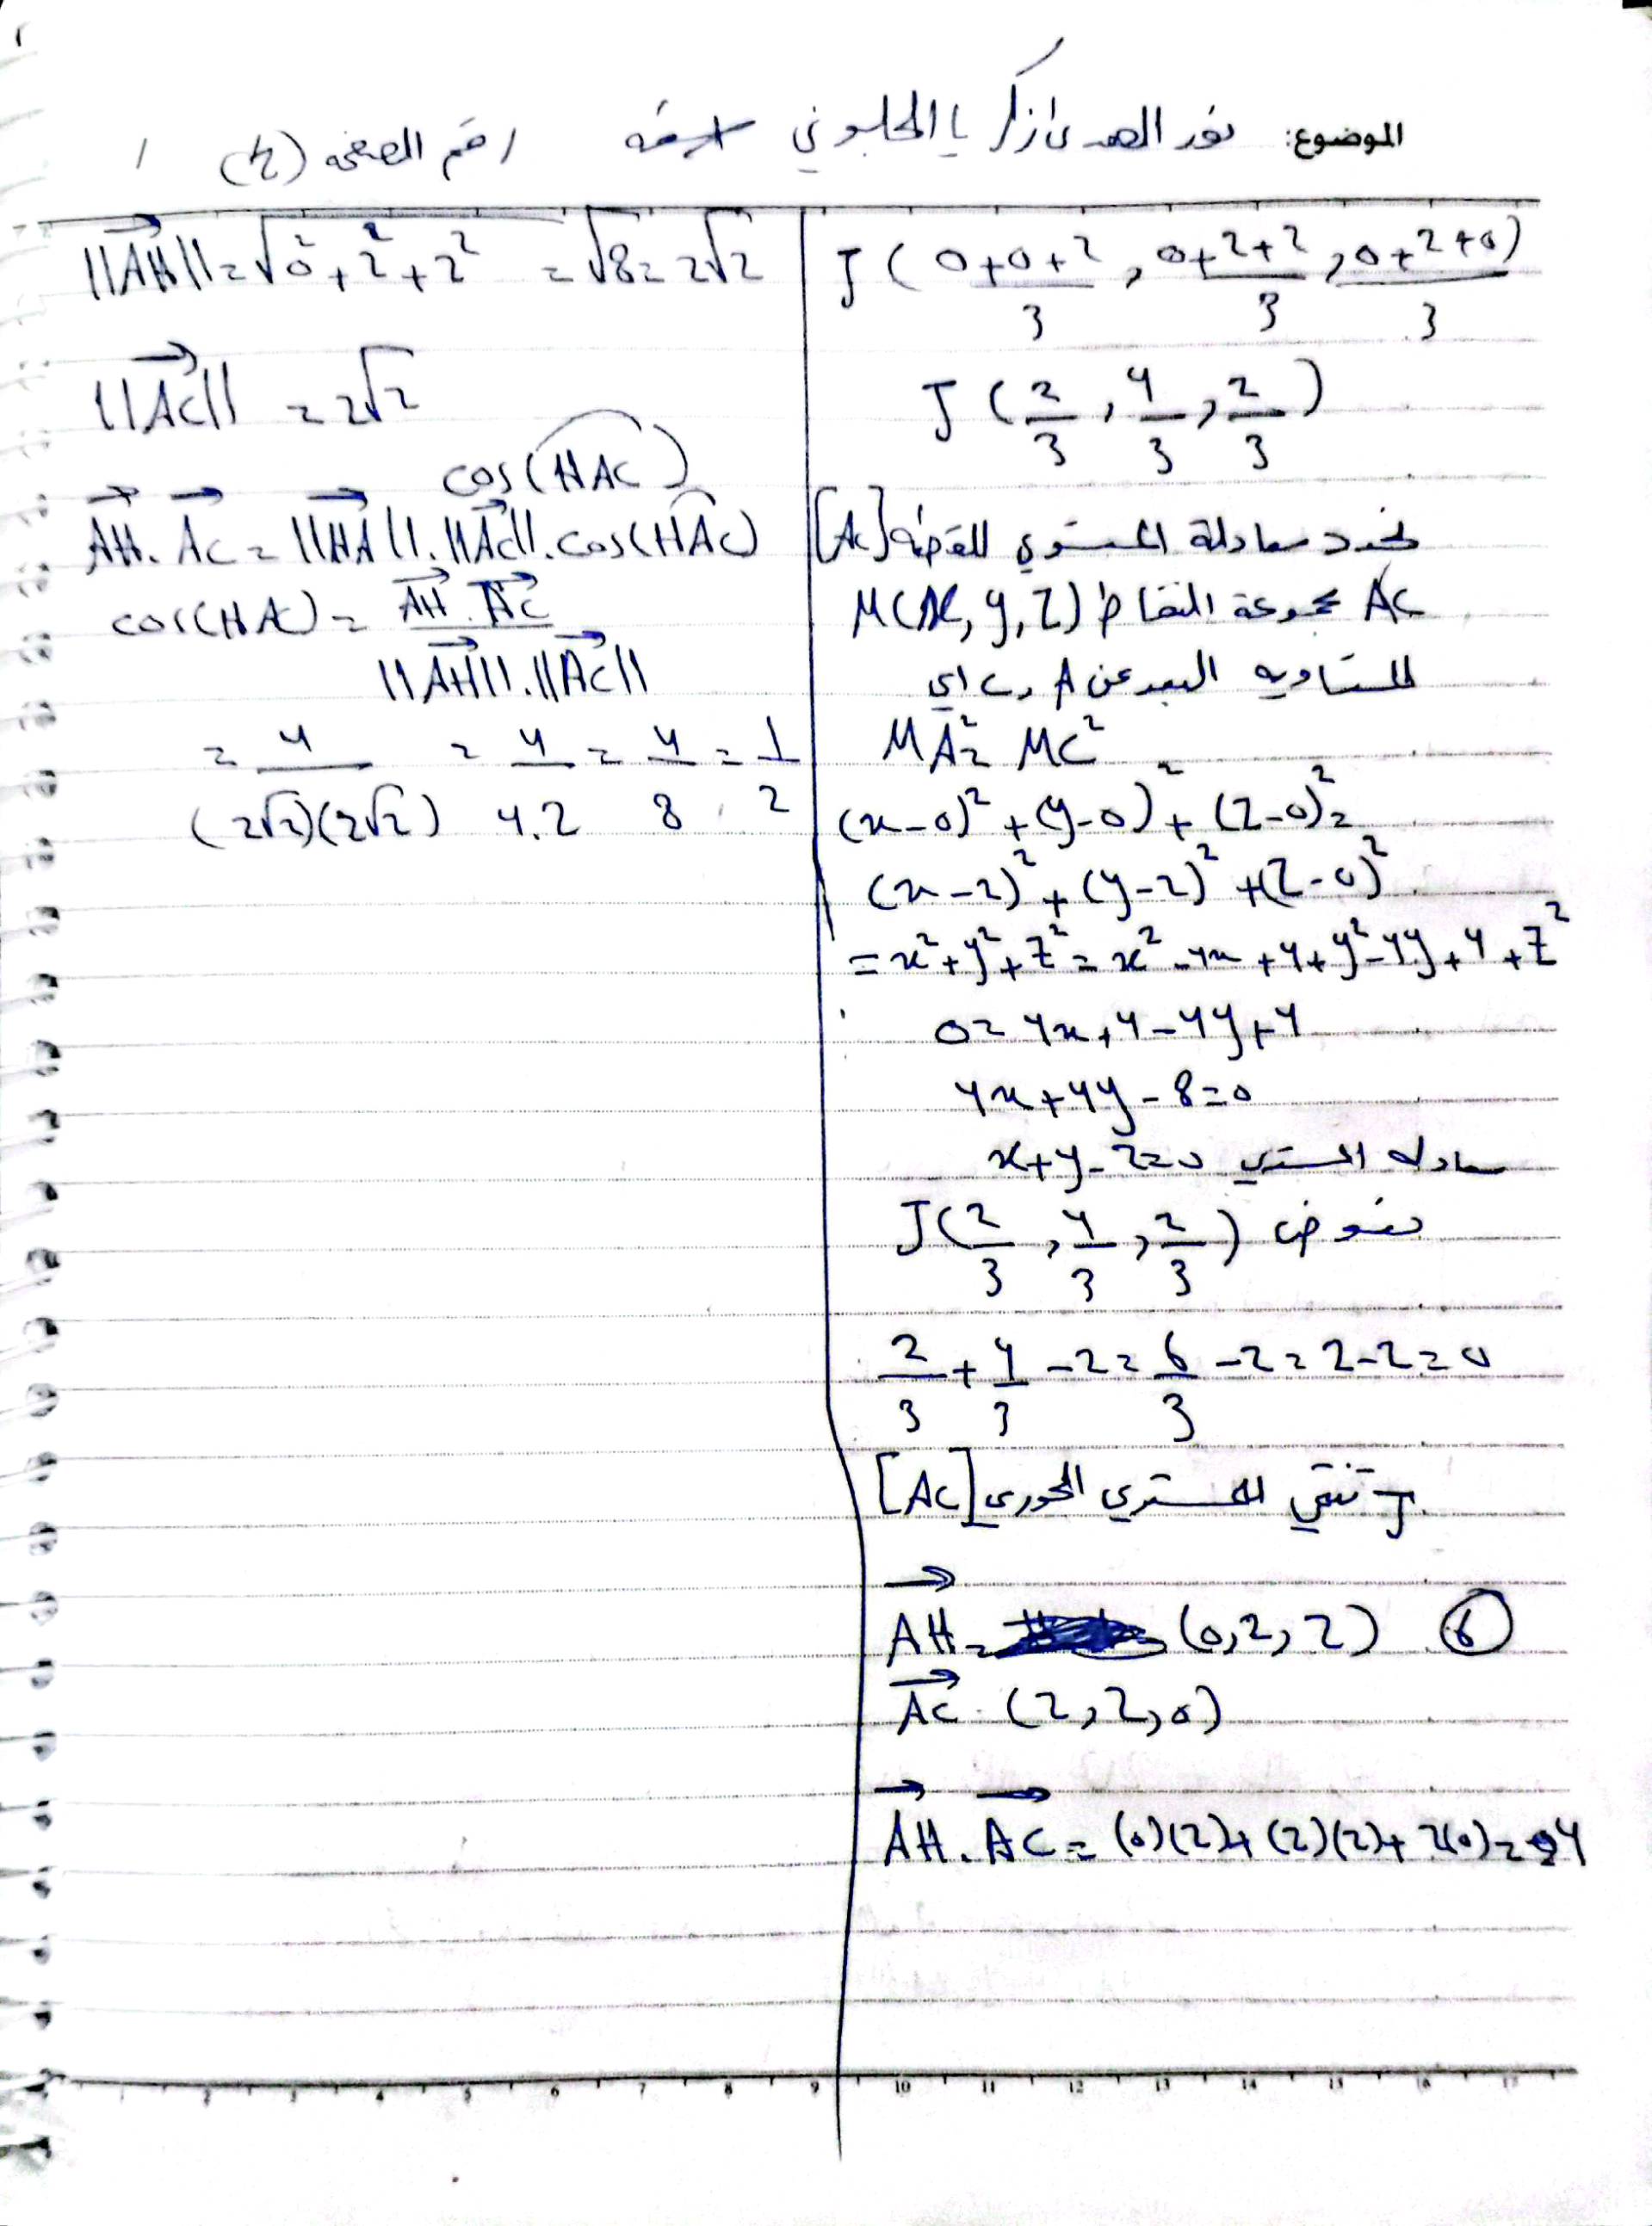 الموضوع: نور الهدى زكريا الحلبوني رقم الصفحة (4)
J ( 0+0+2/3 , 0+2+2/3 , 0+2+0/3 )
J ( 2/3 , 4/3 , 2/3 )
نحدد معادلة المستوي للقطعة [AC]
AC مجموعة النقاط M(x, y, z)
المتساوية البعد عن A و C اي
MA² = MC²
(x-0)² + (y-0)² + (z-0)² =
(x-2)² + (y-2)² + (z-0)²
= x² + y² + z² = x² - 4x + 4 + y² - 4y + 4 + z²
0 = 4x + 4 - 4y + 4
4x + 4y - 8 = 0
x + y - 2 = 0 معادلة المستوي
نعوض J( 2/3 , 4/3 , 2/3 )
2/3 + 4/3 - 2 = 6/3 - 2 = 2 - 2 = 0
J تنتمي للمستوي المحوري [AC]
⑥ AH = (0, 2, 2)
AC (2, 2, 0)
AH . AC = (0)(2) + (2)(2) + 2(0) = 4
||AH|| = √0² + 2² + 2² = √8 = 2√2
||AC|| = 2√2
cos(HAC)
AH . AC = ||HA|| . ||AC|| . cos(HAC)
cos(HAC) = AH . AC / ||AH|| . ||AC||
= 4/(2√2)(2√2) = 4/4.2 = 4/8 = 1/2